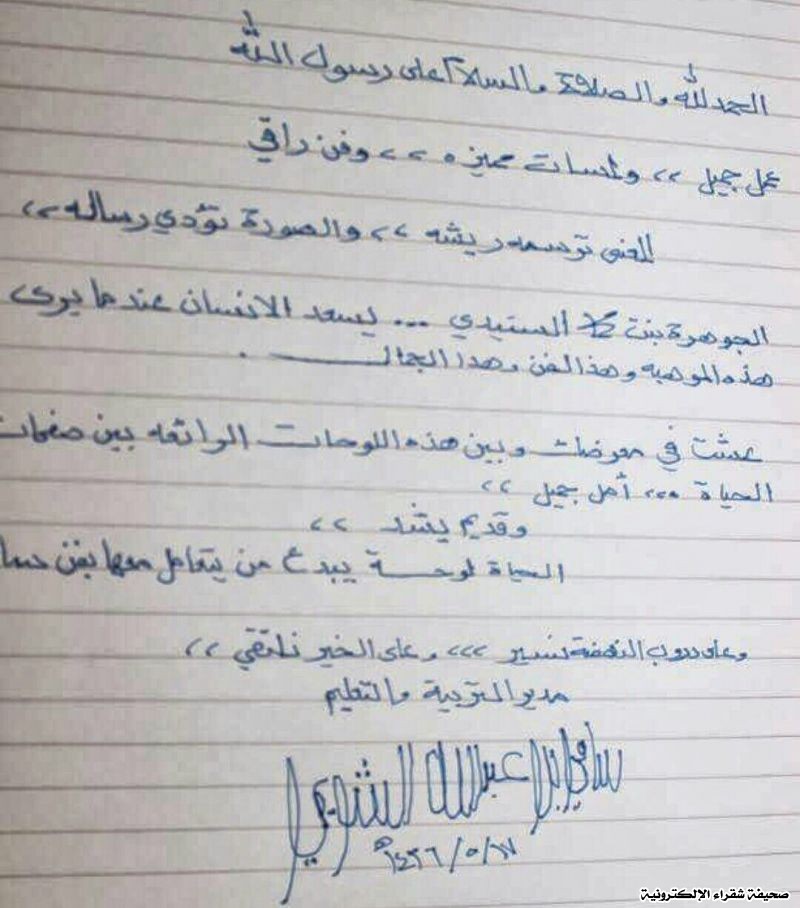 الحمد لله والصلاة والسلام على رسول الله
عمل جميل ،، ولمسات مميزه ،، وفن راقي
المعنى ترسمه ريشه ،، والصورة تؤدي رساله ،،
الجوهرة بنت السنيدي ... يسعد الانسان عندما يرى
هذه الموهبه وهذا الفن وهذا الجمال .
عشت في معرضك وبين هذه اللوحات الرائعه بين صفحات
الحياة ... أمل جميل ،،
وقديم يشد ،،
الحياة لوحة يبدع من يتعامل معها بفن
وعلى دروب النهضة نسير ،،، وعلى الخير نلتقي ،،
مدير التربية والتعليم
سامي بن عبدالله الشويمي
١٤٣٦/٥/١٧هـ
صحيفة شقراء الإلكترونية